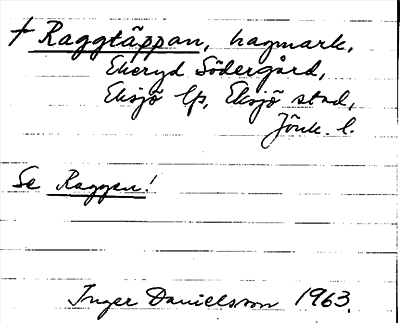 † Raggtäppan, hagmark,
Ekeryd Södergård,
Eksjö lfs, Eksjö stad,
Jönk. l.
Se Raggen!
Inger Danielsson 1963.